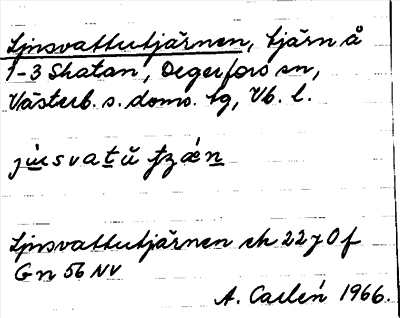 Ljusvattutjärnen, tjärn å
1-3 Shatan, Degerfors sn,
Västerb. s. doms. lg, Vb. l.
jùsvatŭ tzǽn
Ljusvattutjärnen ek 22 7 0 f
Gn 56 NV
A. Carlén 1966.